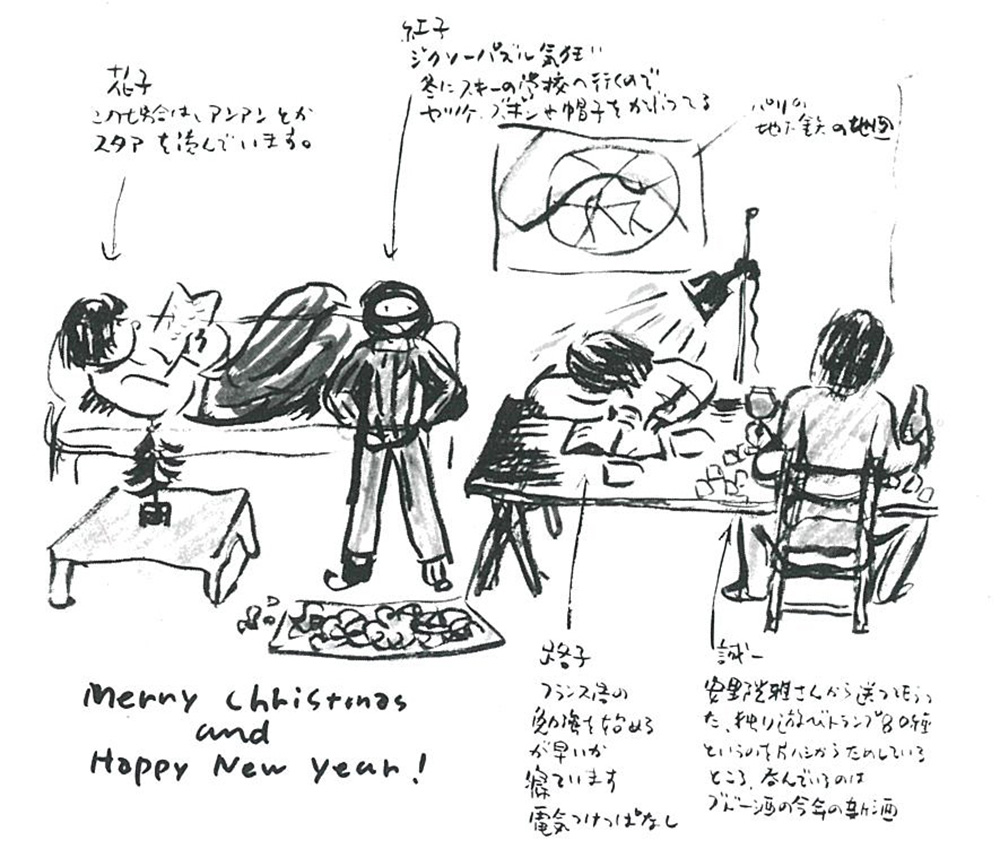 花子
この場合は、アンアンとか
スタアを読んでいます。
紅子
ジクソーパズル気狂い
冬にスキーの学校へ行くので
ヤッケ、ズボンや帽子をかぶってる
パリの
地下鉄の地図
路子
フランス語の
勉強を始める
が早いか
寝ています
電気つけっぱなし
誠一
安野光雅さんから送ってもらっ
た、独り遊びトランプ80種
というのを片ハシからためしている
ところ、呑んでいるのは
ブドー酒の今年の新酒
Merry Christmas
and
Happy New Year!